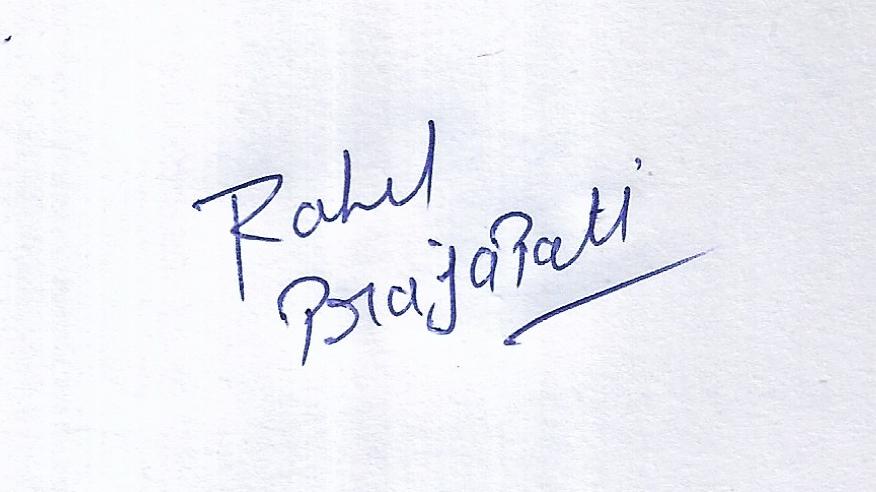 Rahul
Prajapati